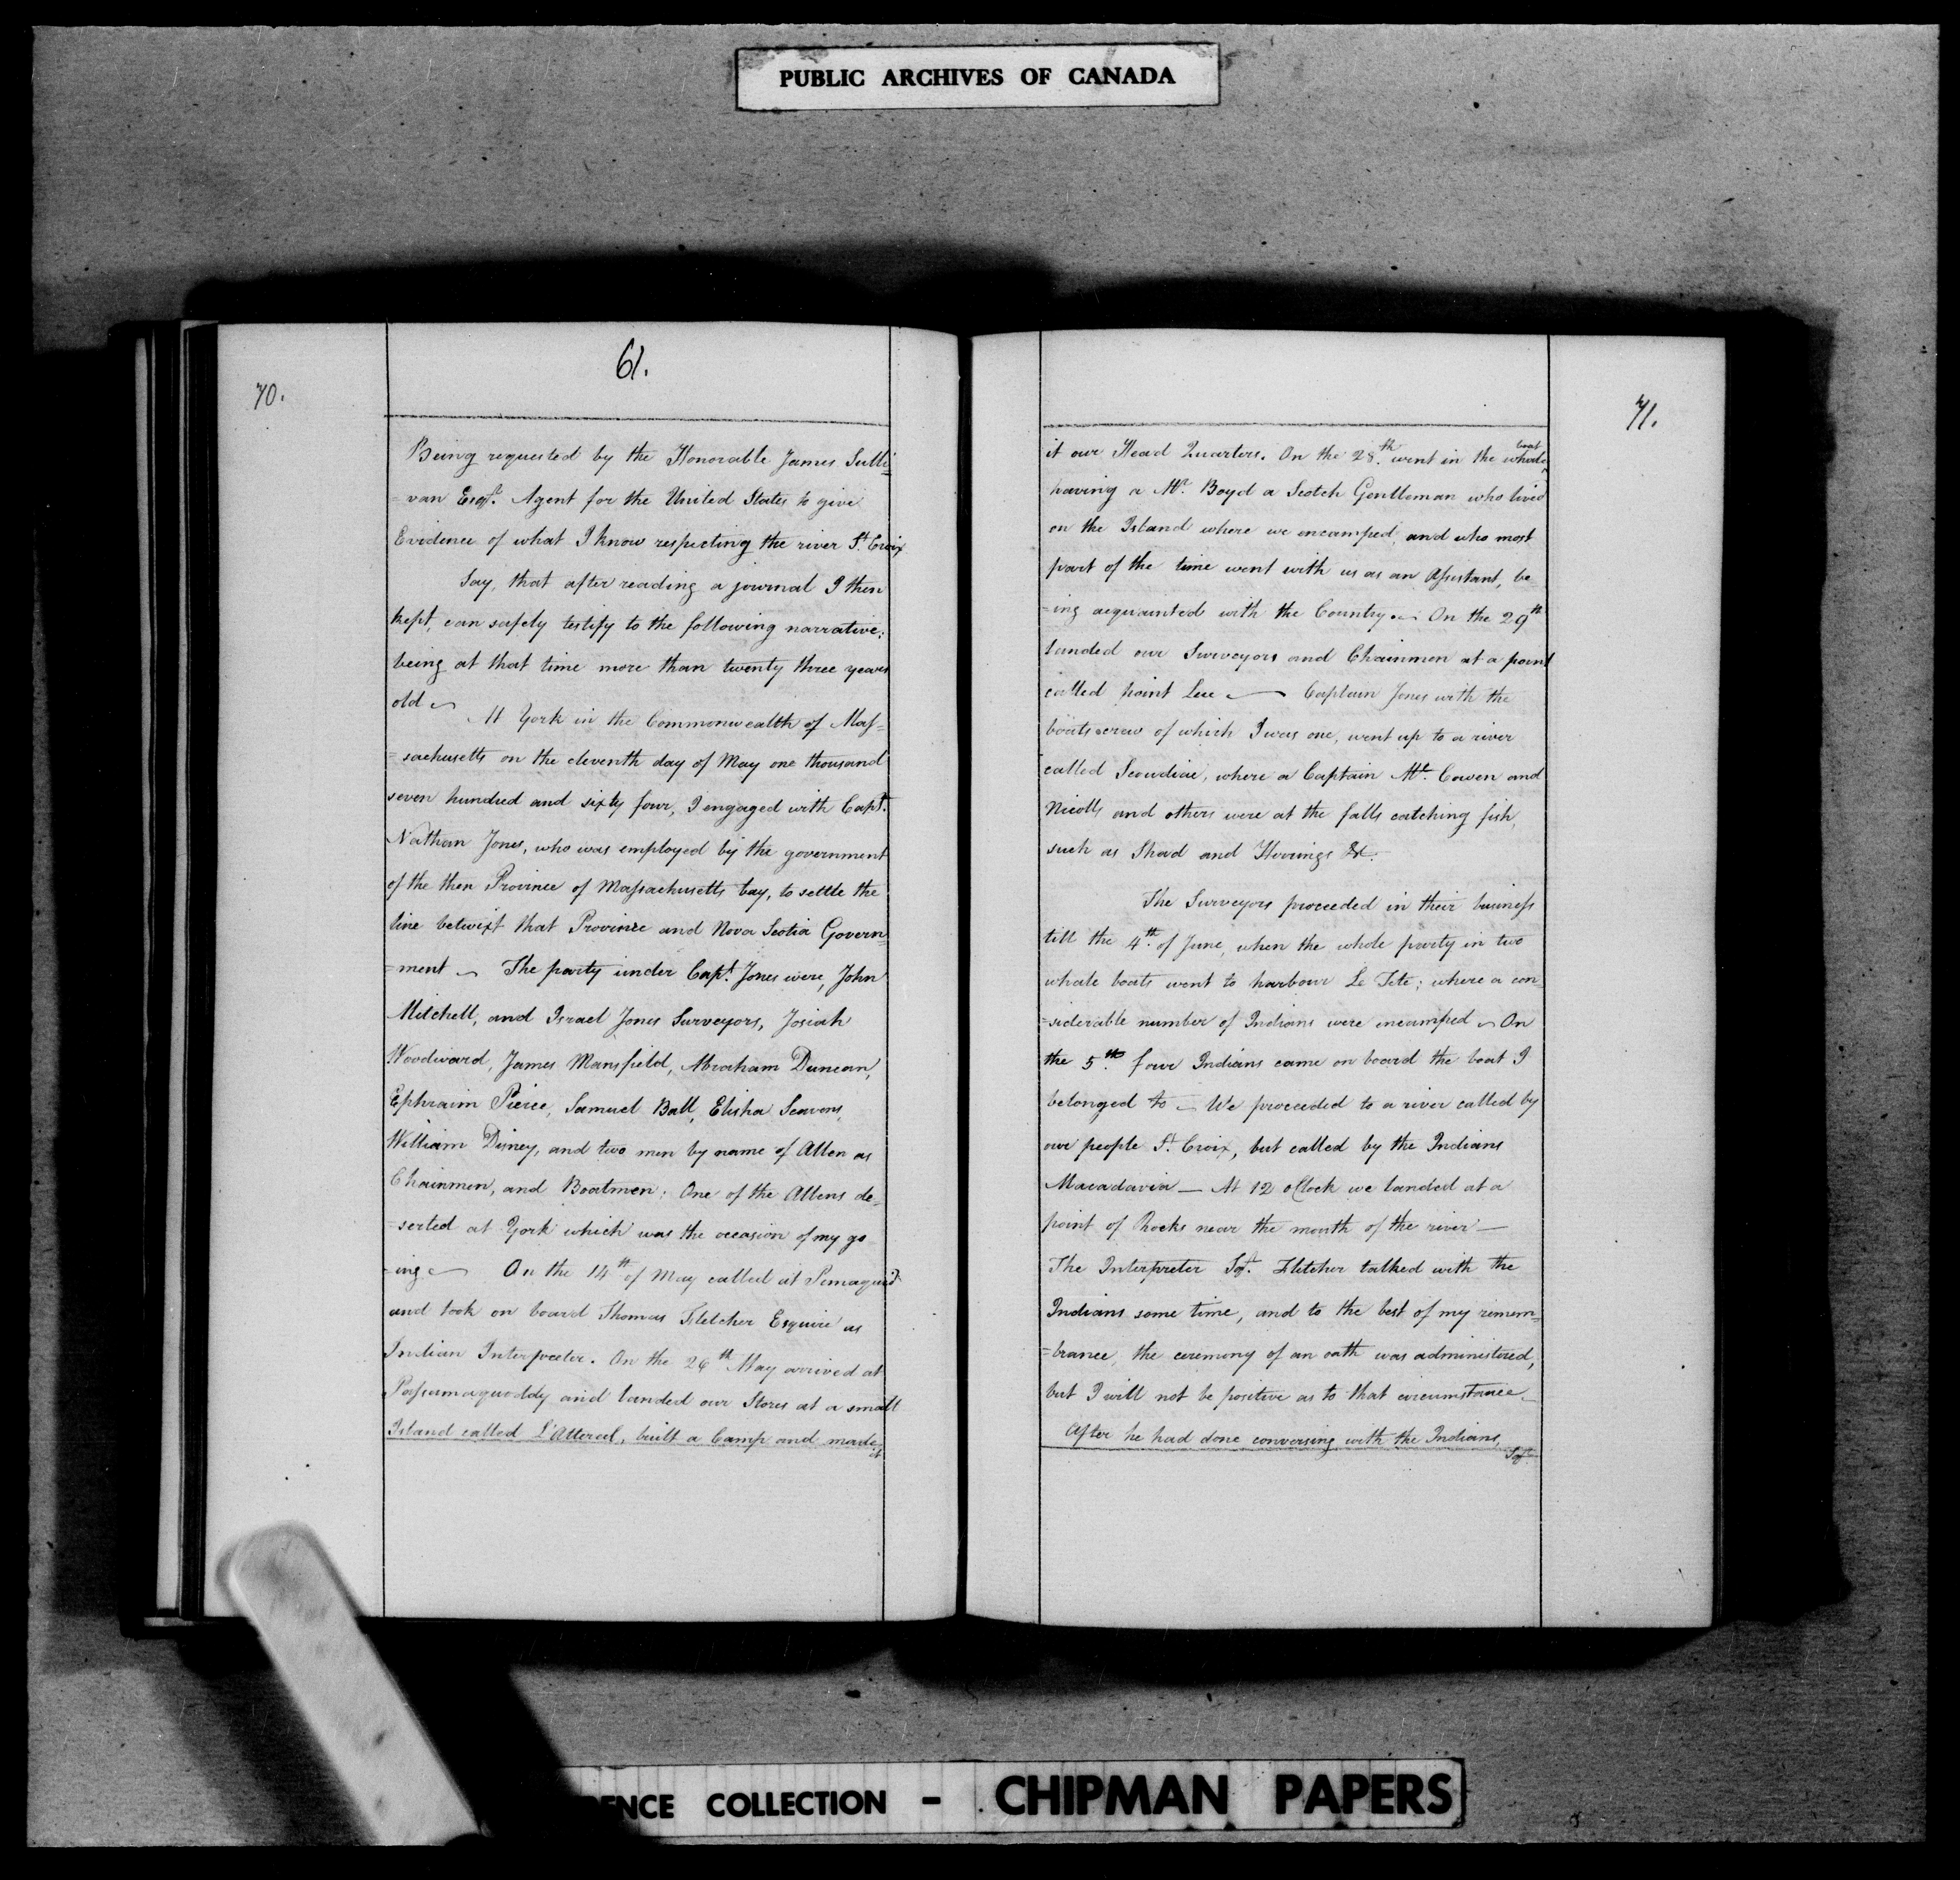 PUBLIC ARCHIVES OF CANADA
70.
61.
Being requested by the Honorable James Sulli=
=van Esqr. Agent for the United States to give
Evidence of what I know respecting the river St. Croix
Say, that after reading a journal I then
kept, can safely testify to the following narrative;
being at that time more than twenty three years
old ~
At York in the Commonwealth of Mas=
=sachusetts on the eleventh day of May one thousand
seven hundred and sixty four, I engaged with Capt.
Nathan Jones, who was employed by the government
of the then Province of Massachusetts bay, to settle the
line betwixt that Province and Nova Scotia Govern=
=ment ~ The party under Capt. Jones were, John
Mitchell, and Israel Jones Surveyors, Josiah
Woodward, James Mansfield, Abraham Duncan,
Ephraim Pierce, Samuel Ball, Elisha Seavons,
William Disney, and two men by name of Allen as
Chainmen, and Boatmen; One of the Allens de=
=serted at York which was the occasion of my go
=ing ~ On the 14th of May called at Pemaquid
and took on board Thomas Fletcher Esquire as
Indian Interpreter. On the 26th May arrived at
Passamaquoddy and landed our Stores at a small
Island called L'Attereel, built a Camp and made
it
71.
it our Head Quarters. On the 28.th went in the whale boat
having a Mr. Boyd a Scotch Gentleman who lived
on the Island where we encamped, and who most
part of the time went with us as an Assistant, be
=ing acquainted with the Country. ~ On the 29th
landed our Surveyors and Chainmen at a point
called point Luc ~ Captain Jones with the
boats crew of which I was one, went up to a river
called Scoudiac, where a Captain Mc. Cowen and
Nicolls and others were at the falls catching fish,
such as Shad and Herrings &c.
The Surveyors proceeded in their business
till the 4th. of June, when the whole party in two
whale boats went to harbour Le Tete; where a con=
=siderable number of Indians were encamped ~ On
the 5th. four Indians came on board the boat I
belonged to ~ We proceeded to a river called by
our people St. Croix, but called by the Indians
Macadavia — At 12 oClock we landed at a
point of Rocks near the mouth of the river —
The Interpreter Sqr. Fletcher talked with the
Indians some time, and to the best of my remem=
=brance, the ceremony of an oath was administered,
but I will not be positive as to that circumstance —
After he had done conversing with the Indians,
Sqr.
COLLECTION - CHIPMAN PAPERS